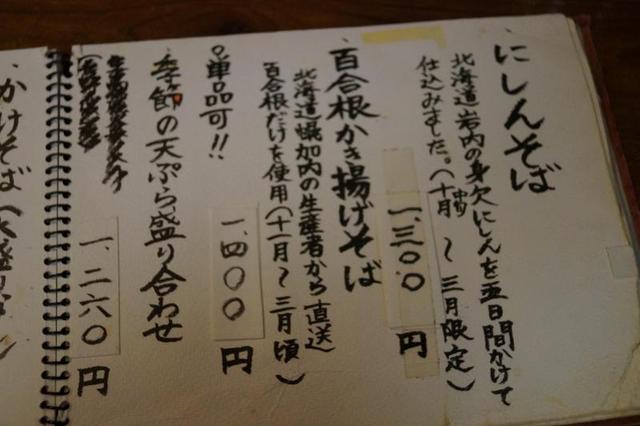 ・にしんそば
北海道岩内の身欠にしんを五日間かけて
仕込みました。(十月中旬～三月限定)
一、三〇〇円
・百合根かき揚げそば
北海道幌加内の生産者から直送
百合根だけを使用(十一月～三月頃)
単品可!!
一、四〇〇円
・季節の天ぷら盛り合わせ
一、二六〇円
・かけそば(大盛り